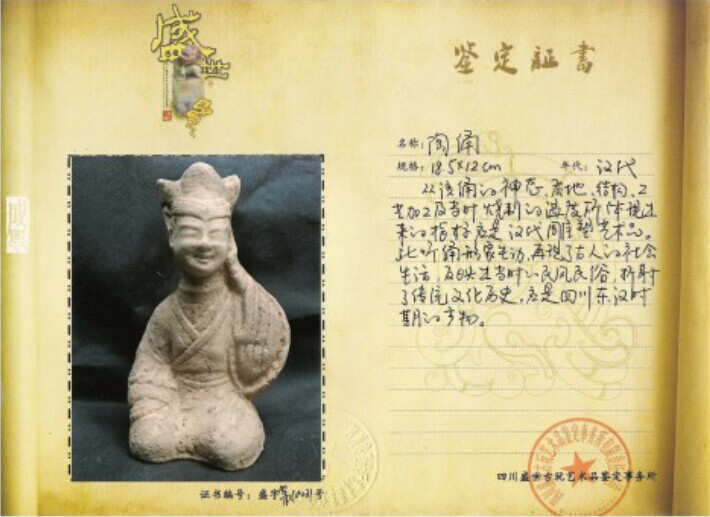 盛世
鉴定证书
名称：陶俑
规格：18.5×12cm 年代：汉代
从该俑的神态、质地、结构、工
艺加工及当时烧制的温度所体现出
来的指标应是汉代陶雕塑艺术品。
此听俑形象生动，再现了古人的社会
生活，反映出当时的民风民俗，折射
了传统文化历史，应是四川东汉时
期的产物。
证书编号：盛字 号
四川盛世古玩艺术品鉴定事务所